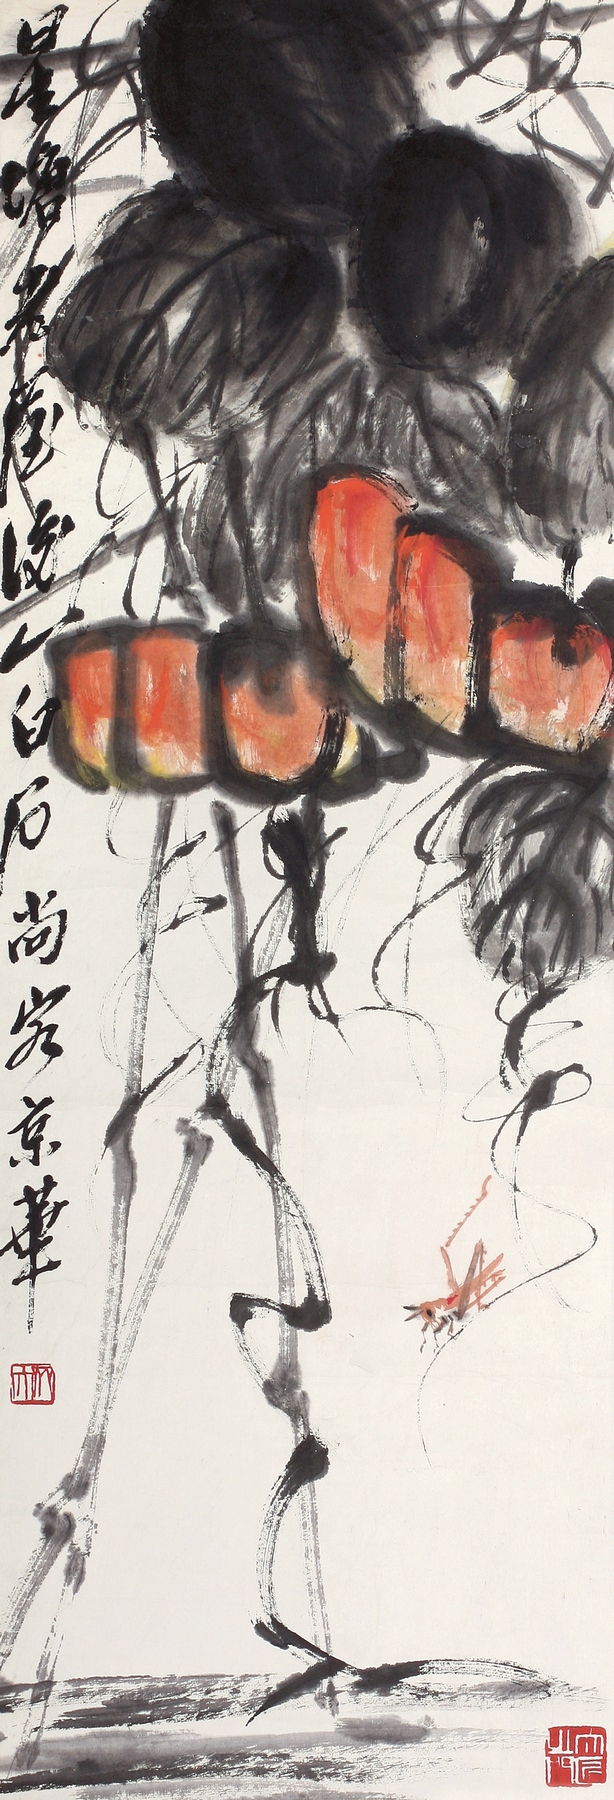 星塘老屋後人白石尚客京華
木人